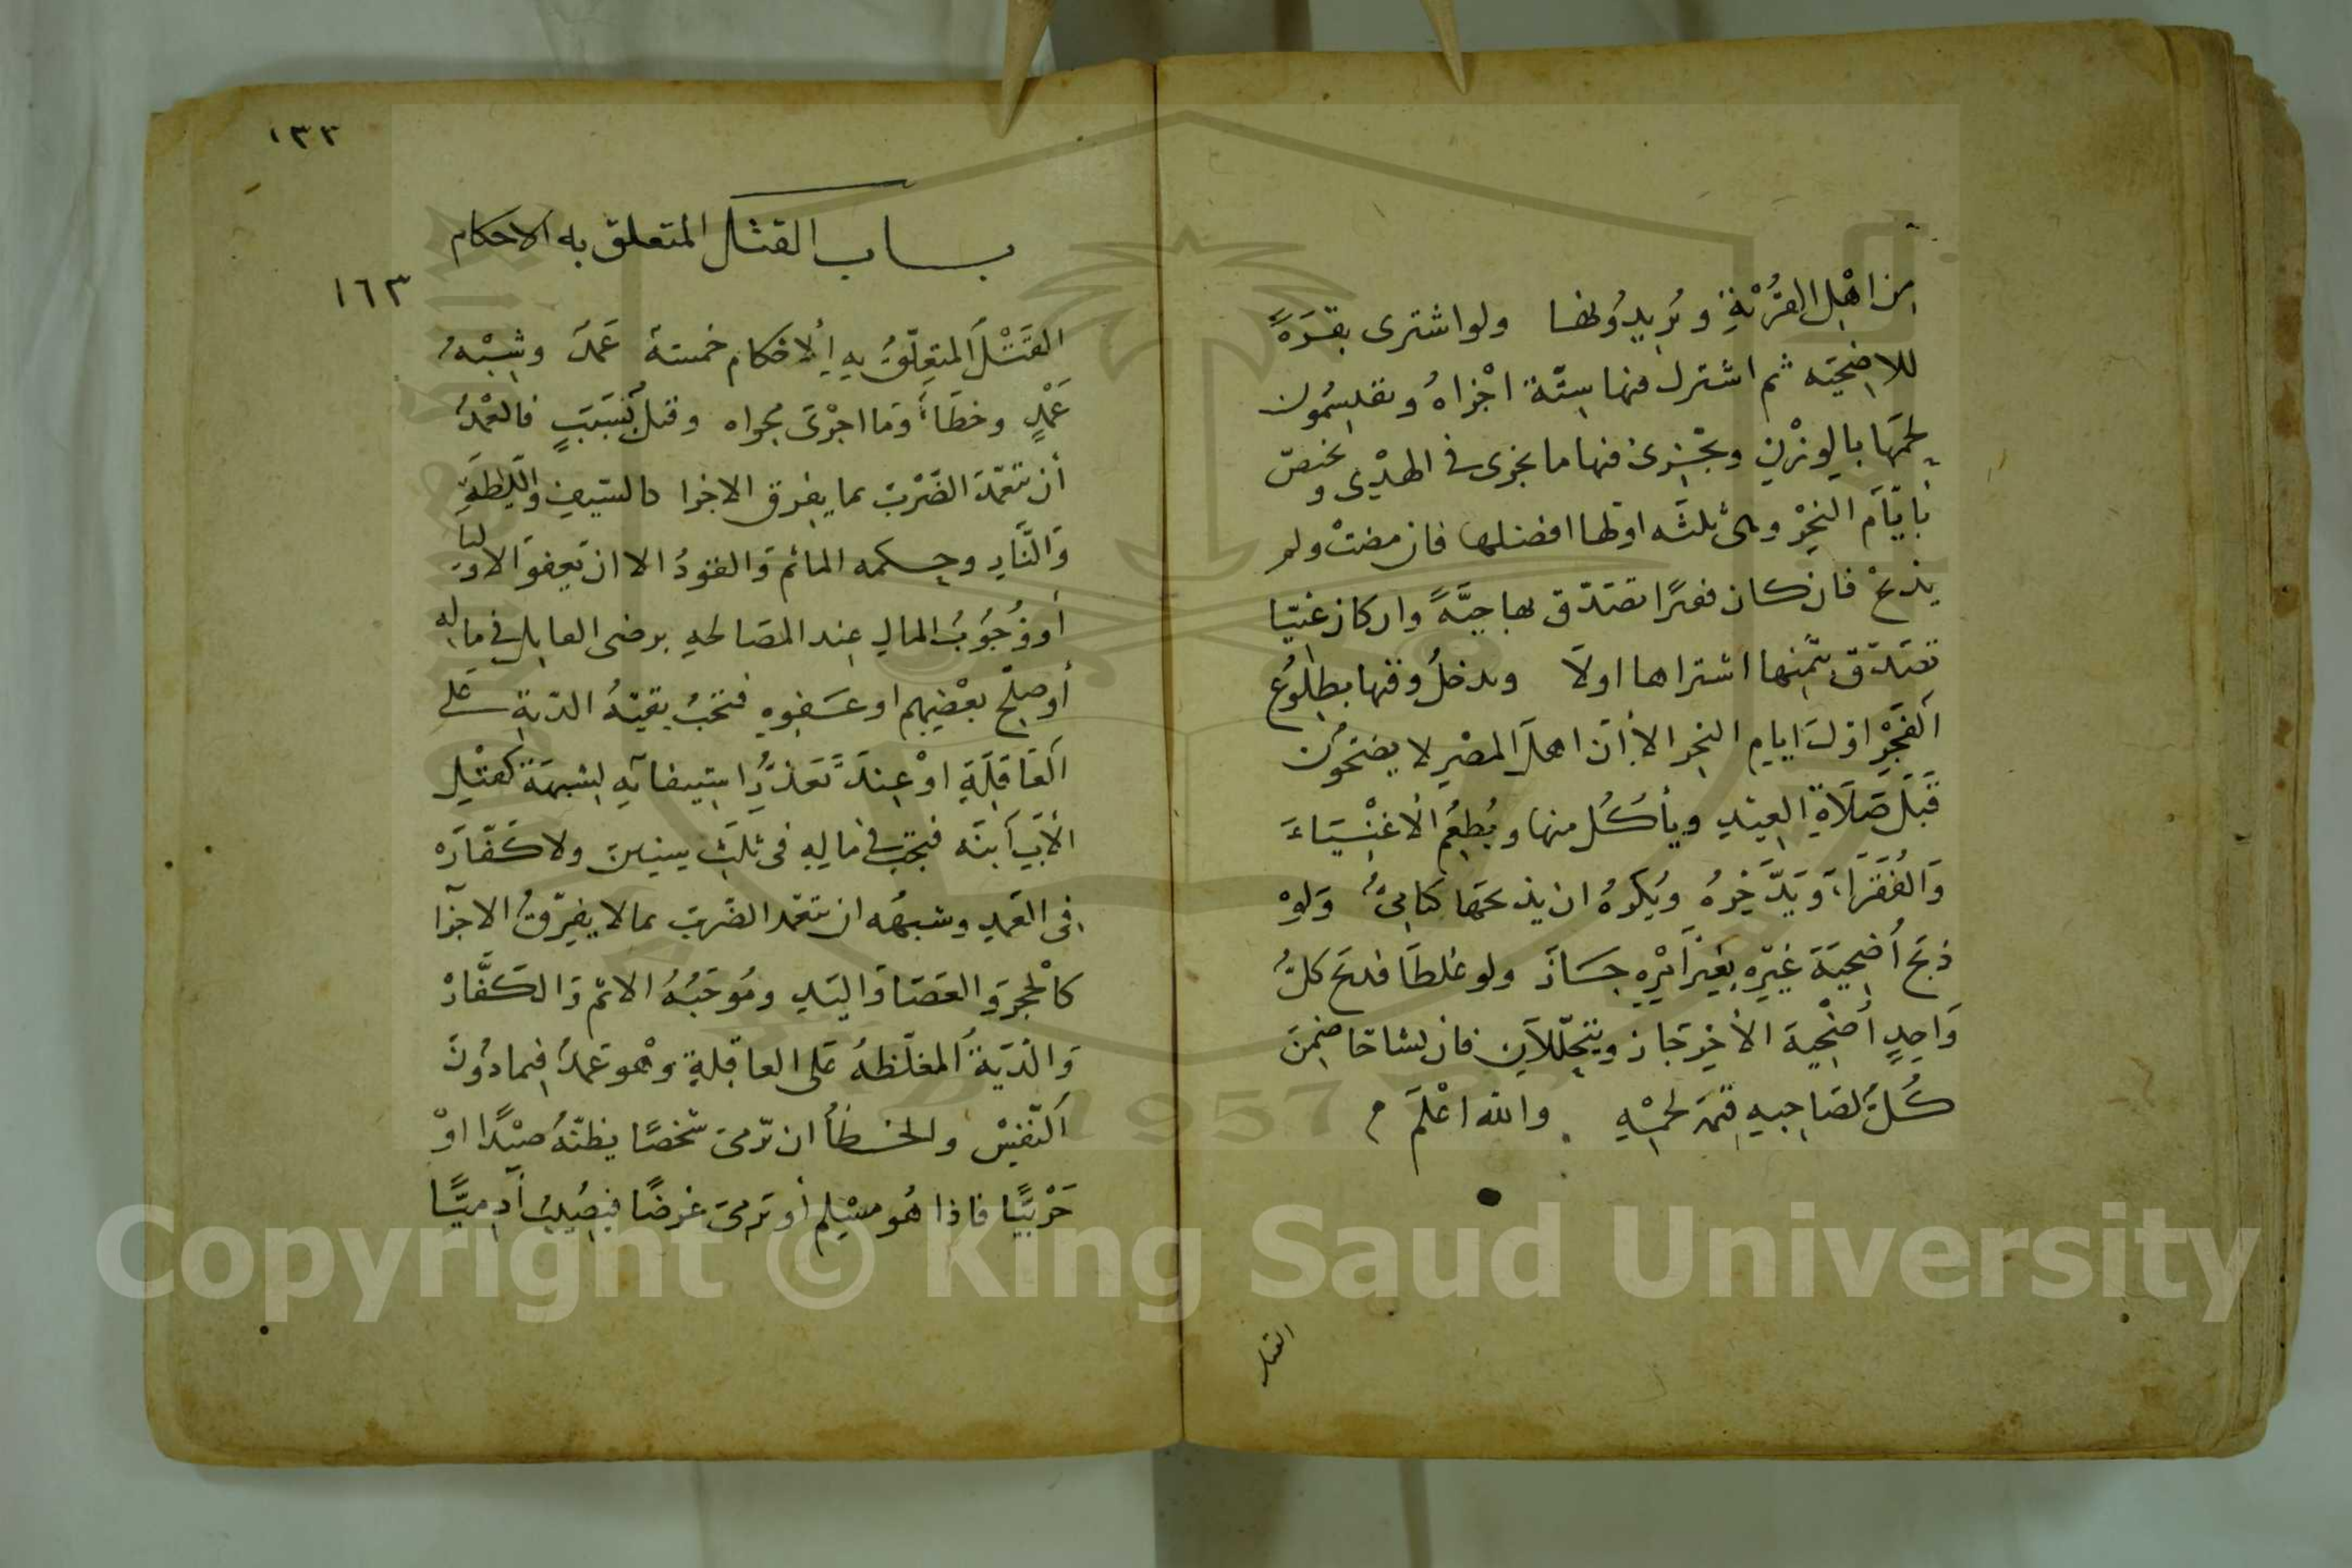 من اهل القربة ويريدونها ولو اشترى بقرة
للاضحية ثم اشترك فيها ستة اجزاه ويقسمون
لحمها بالوزن ويجزئ فيها ما يجزى في الهدي ويختص
بايام النحر وهي ثلثه اولها افضلها فان مضت ولم
يذبح فان كان فقيرا تصدق بها حية وان كان غنيا
تصدق بثمنها اشتراها اولا ويدخل وقتها بطلوع
الفجر اول ايام النحر الا أن اهل المصر لا يضحون
قبل صلاة العيد ويأكل منها ويطعم الأغنياء
والفقراء ويدخره ويكره ان يذبحها كتابي ولو
ذبح أضحية غيره بغير أمره جاز ولو غلطا فذبح كل
واحد أضحية الأخر جاز ويتحللان فان تشاحا ضمن
كل لصاحبه قيمة لحمه والله اعلم م
القتل
١٣٣
باب القتل المتعلق به الاحكام
١٦٣
القتل المتعلق به ألاحكام خمسة عمد وشبه
عمد وخطأ وما اجرى مجراه وقتل بسبب فالعمد
أن يتعمد الضرب بما يفرق الاجزا كالسيف والليطة
والنار وحكمه المأثم والقود الا ان يعفو الاوليا
أو وجوب المال عند المصالحه برضى القاتل في ماله
أو صلح بعضهم او عفوه فتجب بقية الدية على
العاقلة او عند تعذر استيفائه لشبهة كقتل
الأب ابنه فيجب في ماليه في ثلث سنين ولا كفاره
في العمد وشبهه ان يتعمد الضرب بما لا يفرق الاجزآ
كالحجر والعصا واليد وموجبه الاثم والكفارة
والدية المغلظه على العاقلة وهو عمد فيما دون
النفس والخطأ ان يرمى شخصا يظنه صيدا او
حربيا فاذا هو مسلم أو يرمى غرضا فيصيب آدميا
Copyright © King Saud University
1957